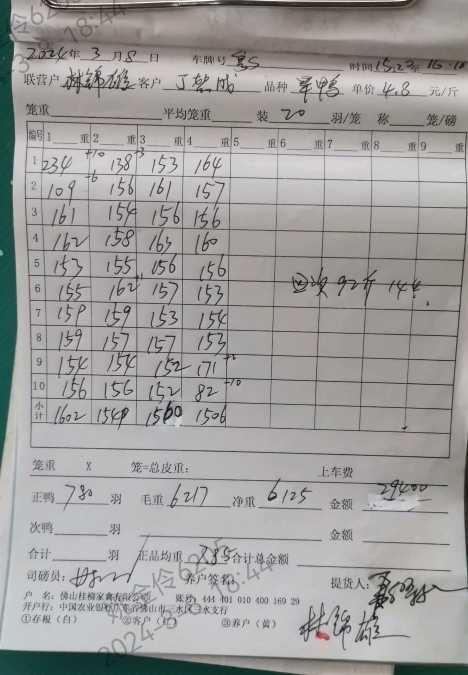 2024年3月8日 车牌号 粤S 时间15.23
联营户 林锦雄 客户 品种 单价4.8元/斤
笼重 平均笼重 装20羽/笼 称 笼/磅
编号 1 重 2 重 3 重 4 重 5 重 6 重 7 重 8 重 9 重
1 234 +10 138 153 164
2 109 -6 156 161 157
3 161 154 156 156
4 162 158 163 160
5 153 155 156 156
6 155 162 157 153
7 159 159 153 154
8 159 157 157 153
9 154 154 152 171
10 156 156 152 82 -10
小计 1602 1549 1560 1506
92斤 144
笼重 X 笼=总皮重: 上车费
正鸭 780 羽 毛重 6217 净重 6125 金额 29400
次鸭 羽 金额
合计 羽 正品均重 7.85 合计总金额
司磅员: 养户签名: 提货人:
户 名: 佛山桂柳家禽有限公司 账号: 444 401 010 400 169 29
开户行: 中国农业银行广东省佛山市三水区三水支行
①存根(白) ②客户(红) ③养户(黄)
林锦雄